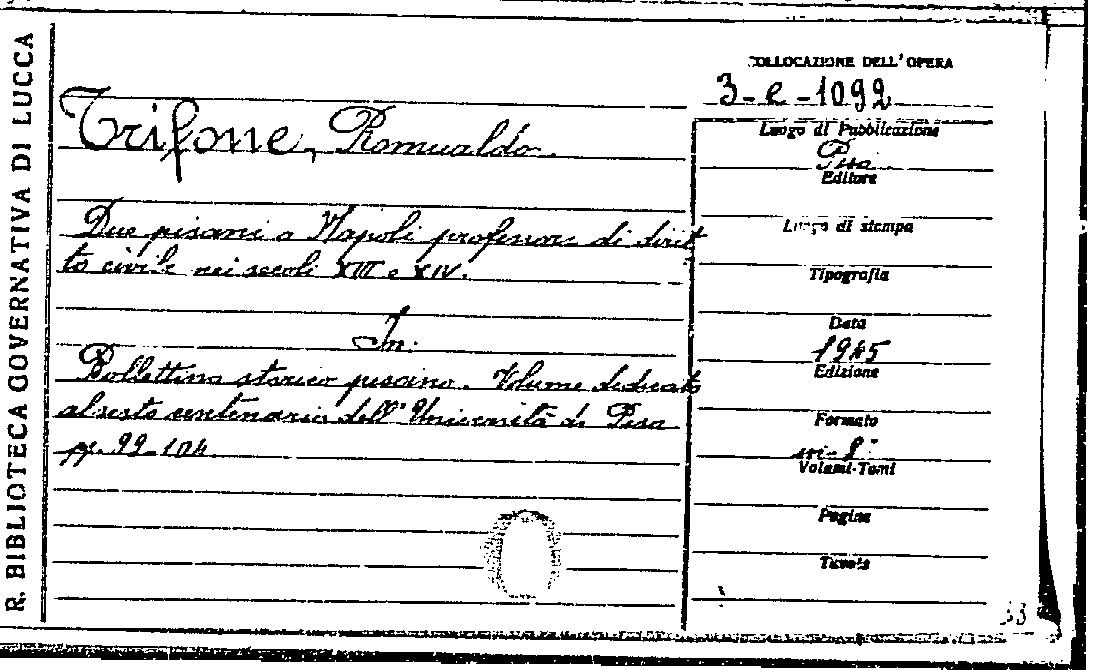 R. BIBLIOTECA GOVERNATIVA DI LUCCA
COLLOCAZIONE DELL'OPERA
3-e-1092
Trifone, Romualdo.
Due pisani a Napoli professori di dirit
to civile nei secoli XIII e XIV.
In:
Bollettino storico pisano. Volume dedicato
al sesto centenario dell'Università di Pisa
pp. 99-104.
Luogo di Pubblicazione
Pisa
Editore
Luogo di stampa
Tipografia
Data
1945
Edizione
Formato
in-8°
Volumi-Tomi
Pagine
Tavole